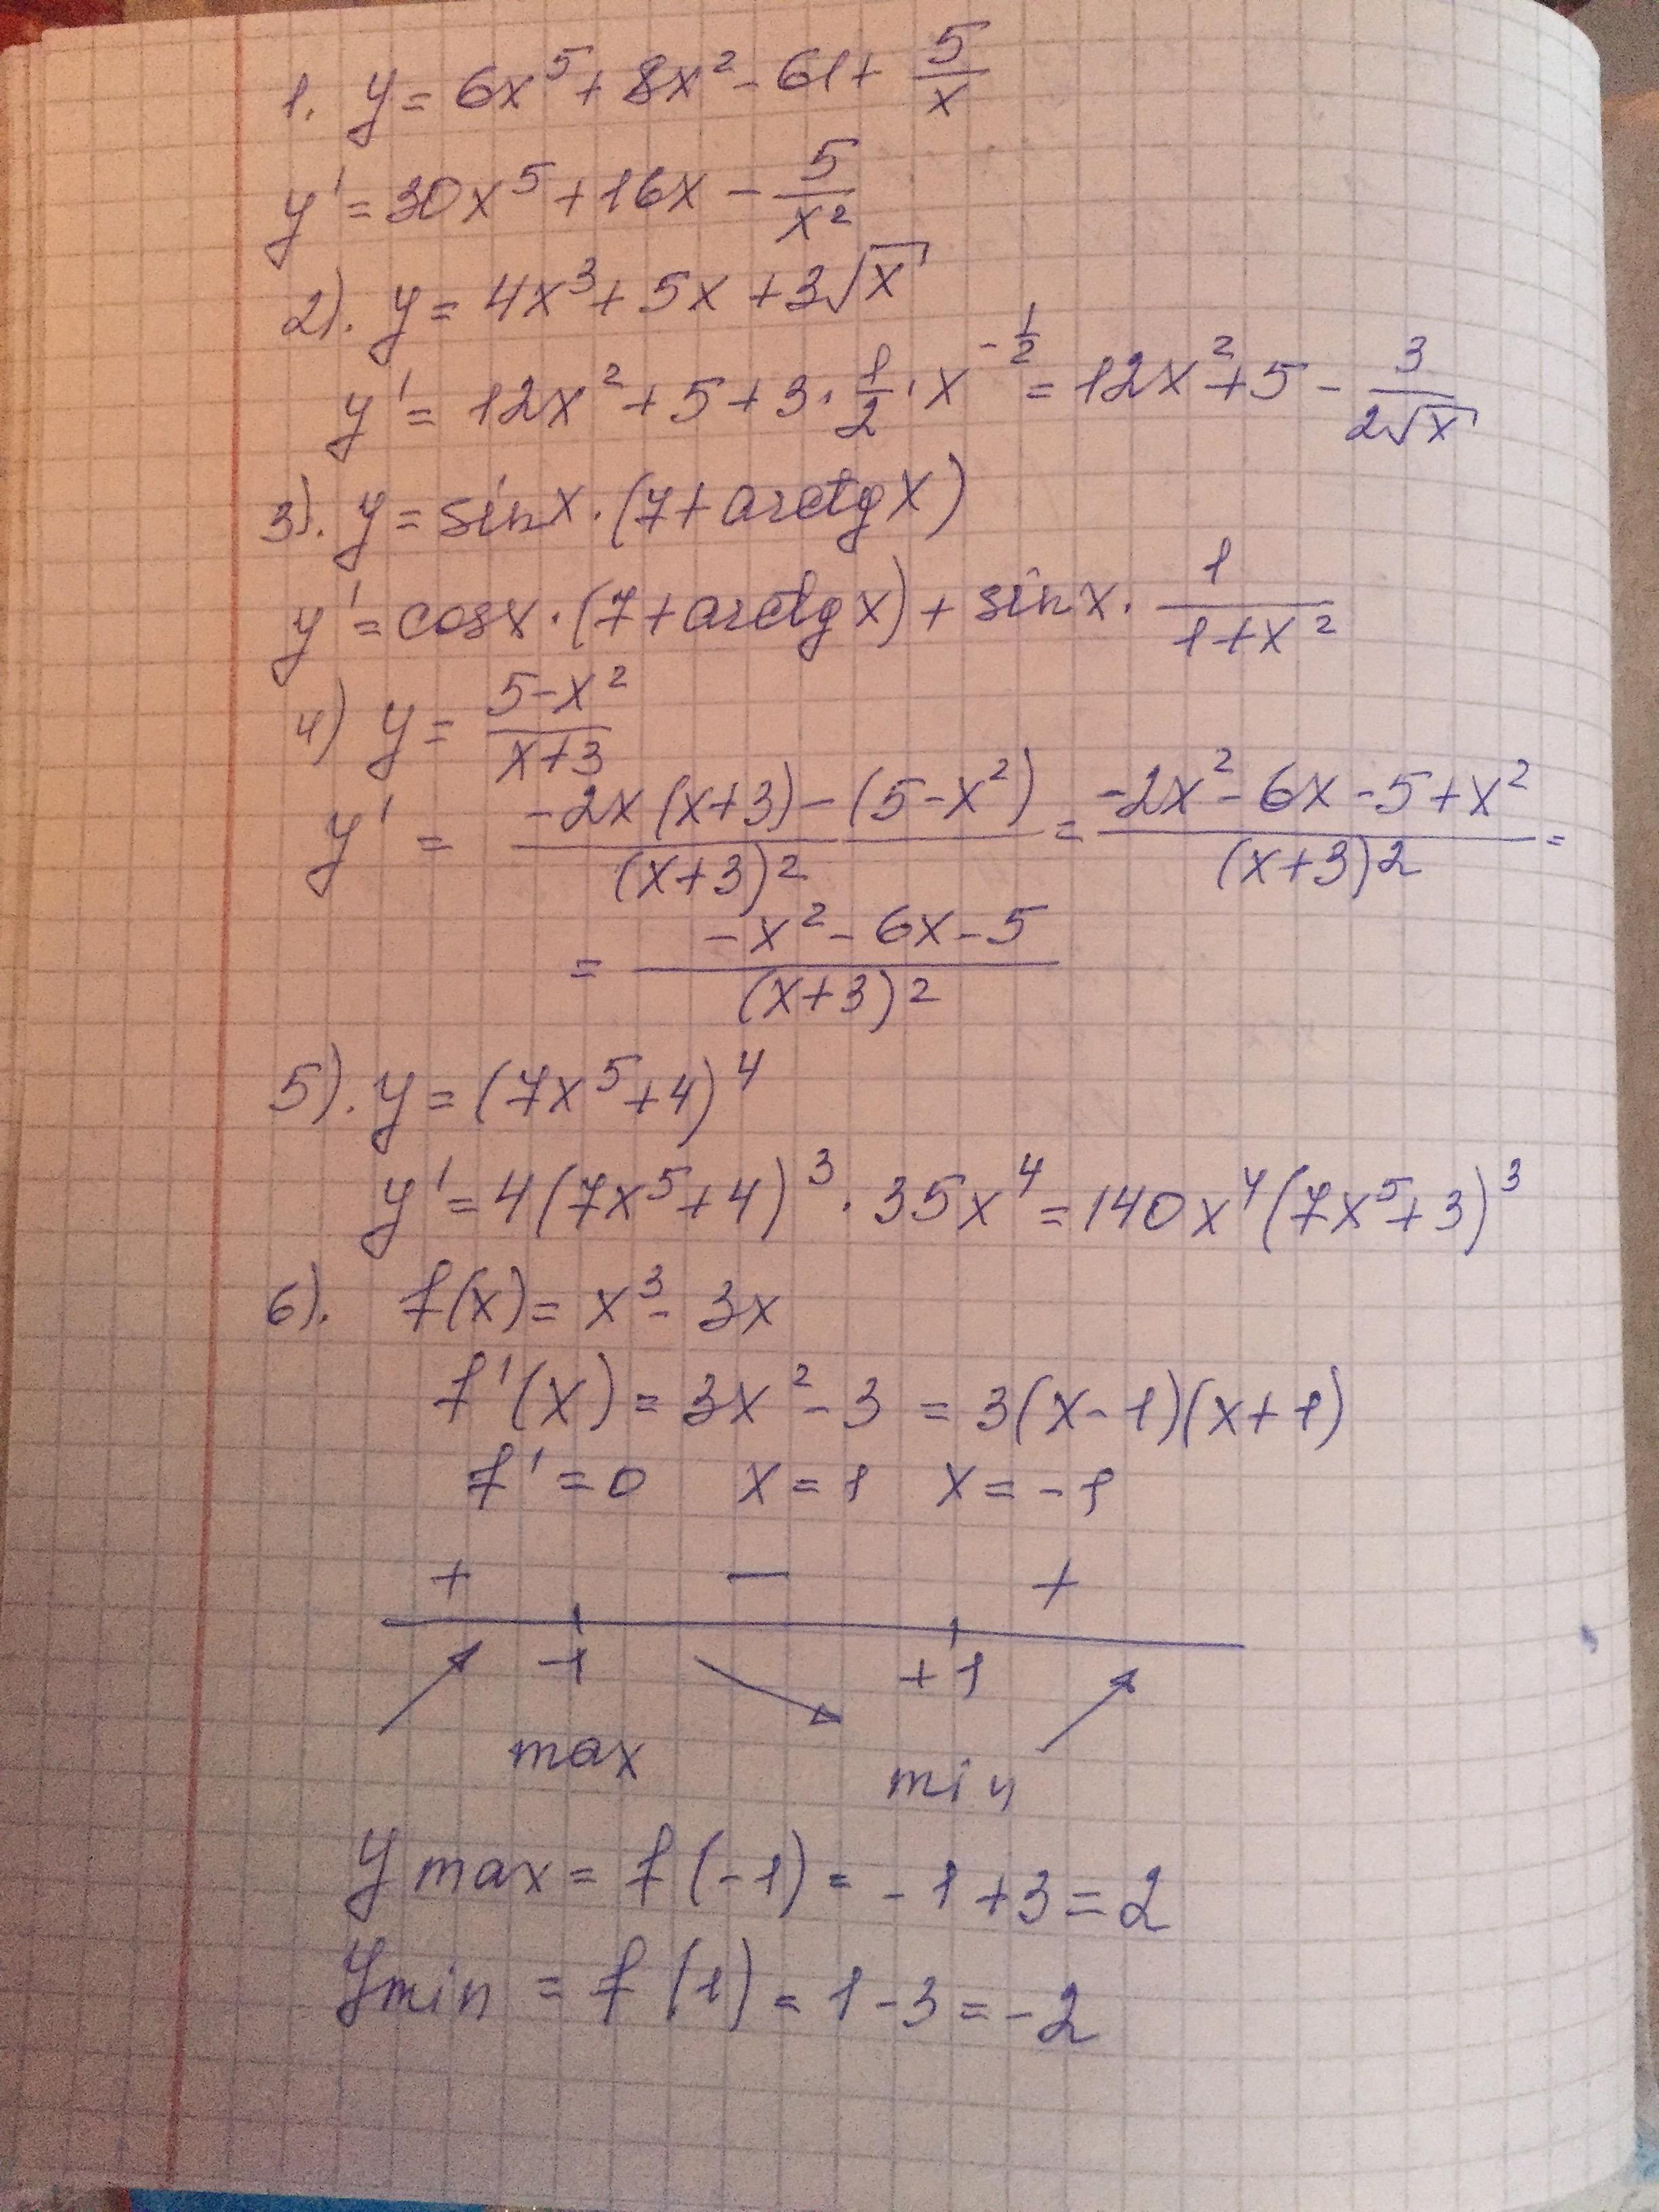 1. y = 6x⁵ + 8x² - 61 + 5/x
y' = 30x⁵ + 16x - 5/x²
2). y = 4x³ + 5x + 3√x
y' = 12x² + 5 + 3 · 1/2 · x^(-1/2) = 12x² + 5 - 3/(2√x)
3). y = sinx · (7 + arctg x)
y' = cosx · (7 + arctg x) + sin x · 1/(1+x²)
4) y = (5-x²)/(x+3)
y' = (-2x(x+3) - (5-x²))/(x+3)² = (-2x² - 6x - 5 + x²)/(x+3)² =
= (-x² - 6x - 5)/(x+3)²
5). y = (7x⁵ + 4)⁴
y' = 4(7x⁵ + 4)³ · 35x⁴ = 140x⁴(7x⁵ + 3)³
6). f(x) = x³ - 3x
f'(x) = 3x² - 3 = 3(x-1)(x+1)
f' = 0 x = 1 x = -1
+ − +
-1 +1
max min
y max = f(-1) = -1 + 3 = 2
y min = f(1) = 1 - 3 = -2